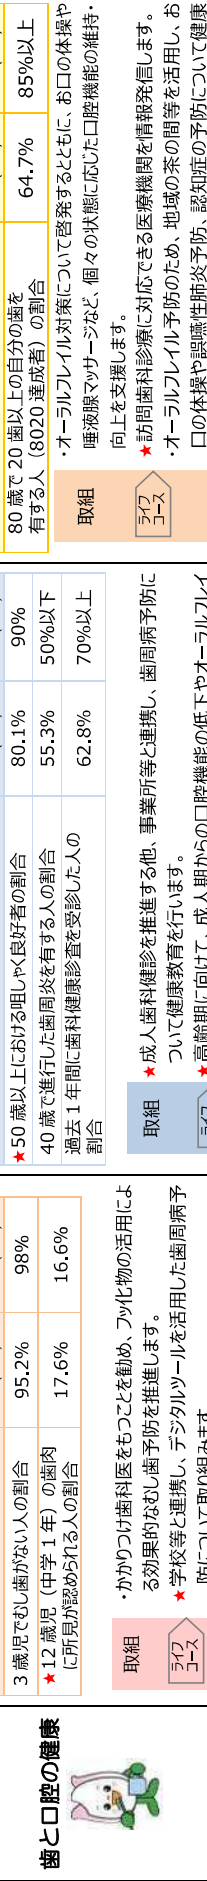 歯と口腔の健康
3 歳児でむし歯がない人の割合 95.2% 98%
★12 歳児（中学 1 年）の歯肉に所見が認められる人の割合 17.6% 16.6%
取組
・かかりつけ歯科医をもつことを勧め、フッ化物の活用によ
る効果的なむし歯予防を推進します。
ライフコース
★学校等と連携し、デジタルツールを活用した歯周病予
防について取り組みます
★50 歳以上における咀しゃく良好者の割合 80.1% 90%
40 歳で進行した歯周炎を有する人の割合 55.3% 50%以下
過去 1 年間に歯科健康診査を受診した人の
割合 62.8% 70%以上
取組
★成人歯科健診を推進する他、事業所等と連携し、歯周病予防に
ついて健康教育を行います。
ライフ
★高齢期に向けて、成人期からの口腔機能の低下やオーラルフレイ
80 歳で 20 歯以上の自分の歯を
有する人（8020 達成者）の割合 64.7% 85%以上
取組
・オーラルフレイル対策について啓発するとともに、お口の体操や
唾液腺マッサージなど、個々の状態に応じた口腔機能の維持・
向上を支援します。
ライフコース
★訪問歯科診療に対応できる医療機関を情報発信します。
・オーラルフレイル予防のため、地域の茶の間等を活用し、お
口の体操や誤嚥性肺炎予防、認知症の予防について健康